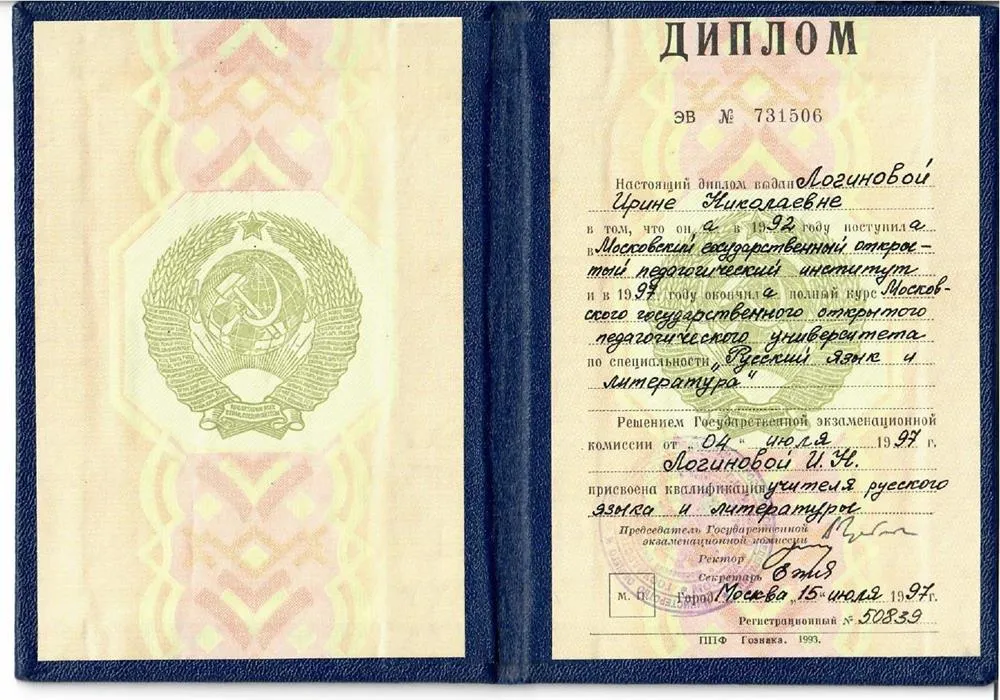 ДИПЛОМ
ЭВ № 731506
Настоящий диплом выдан Логиновой
Ирине Николаевне
в том, что он а в 1992 году поступил а
в Московский государственный откры-
тый педагогический институт
и в 1997 году окончил а полный курс Москов-
ского государственного открытого
педагогического университета
по специальности „Русский язык и
литература"
Решением Государственной экзаменационной
комиссии от „04" июля 1997 г.
Логиновой И. Н.
присвоена квалификация учителя русского
языка и литературы
Председатель Государственной
экзаменационной комиссии
Ректор
Секретарь
М. П. Город Москва „15" июля 1997г.
Регистрационный № 50839
ППФ Гознака. 1993.